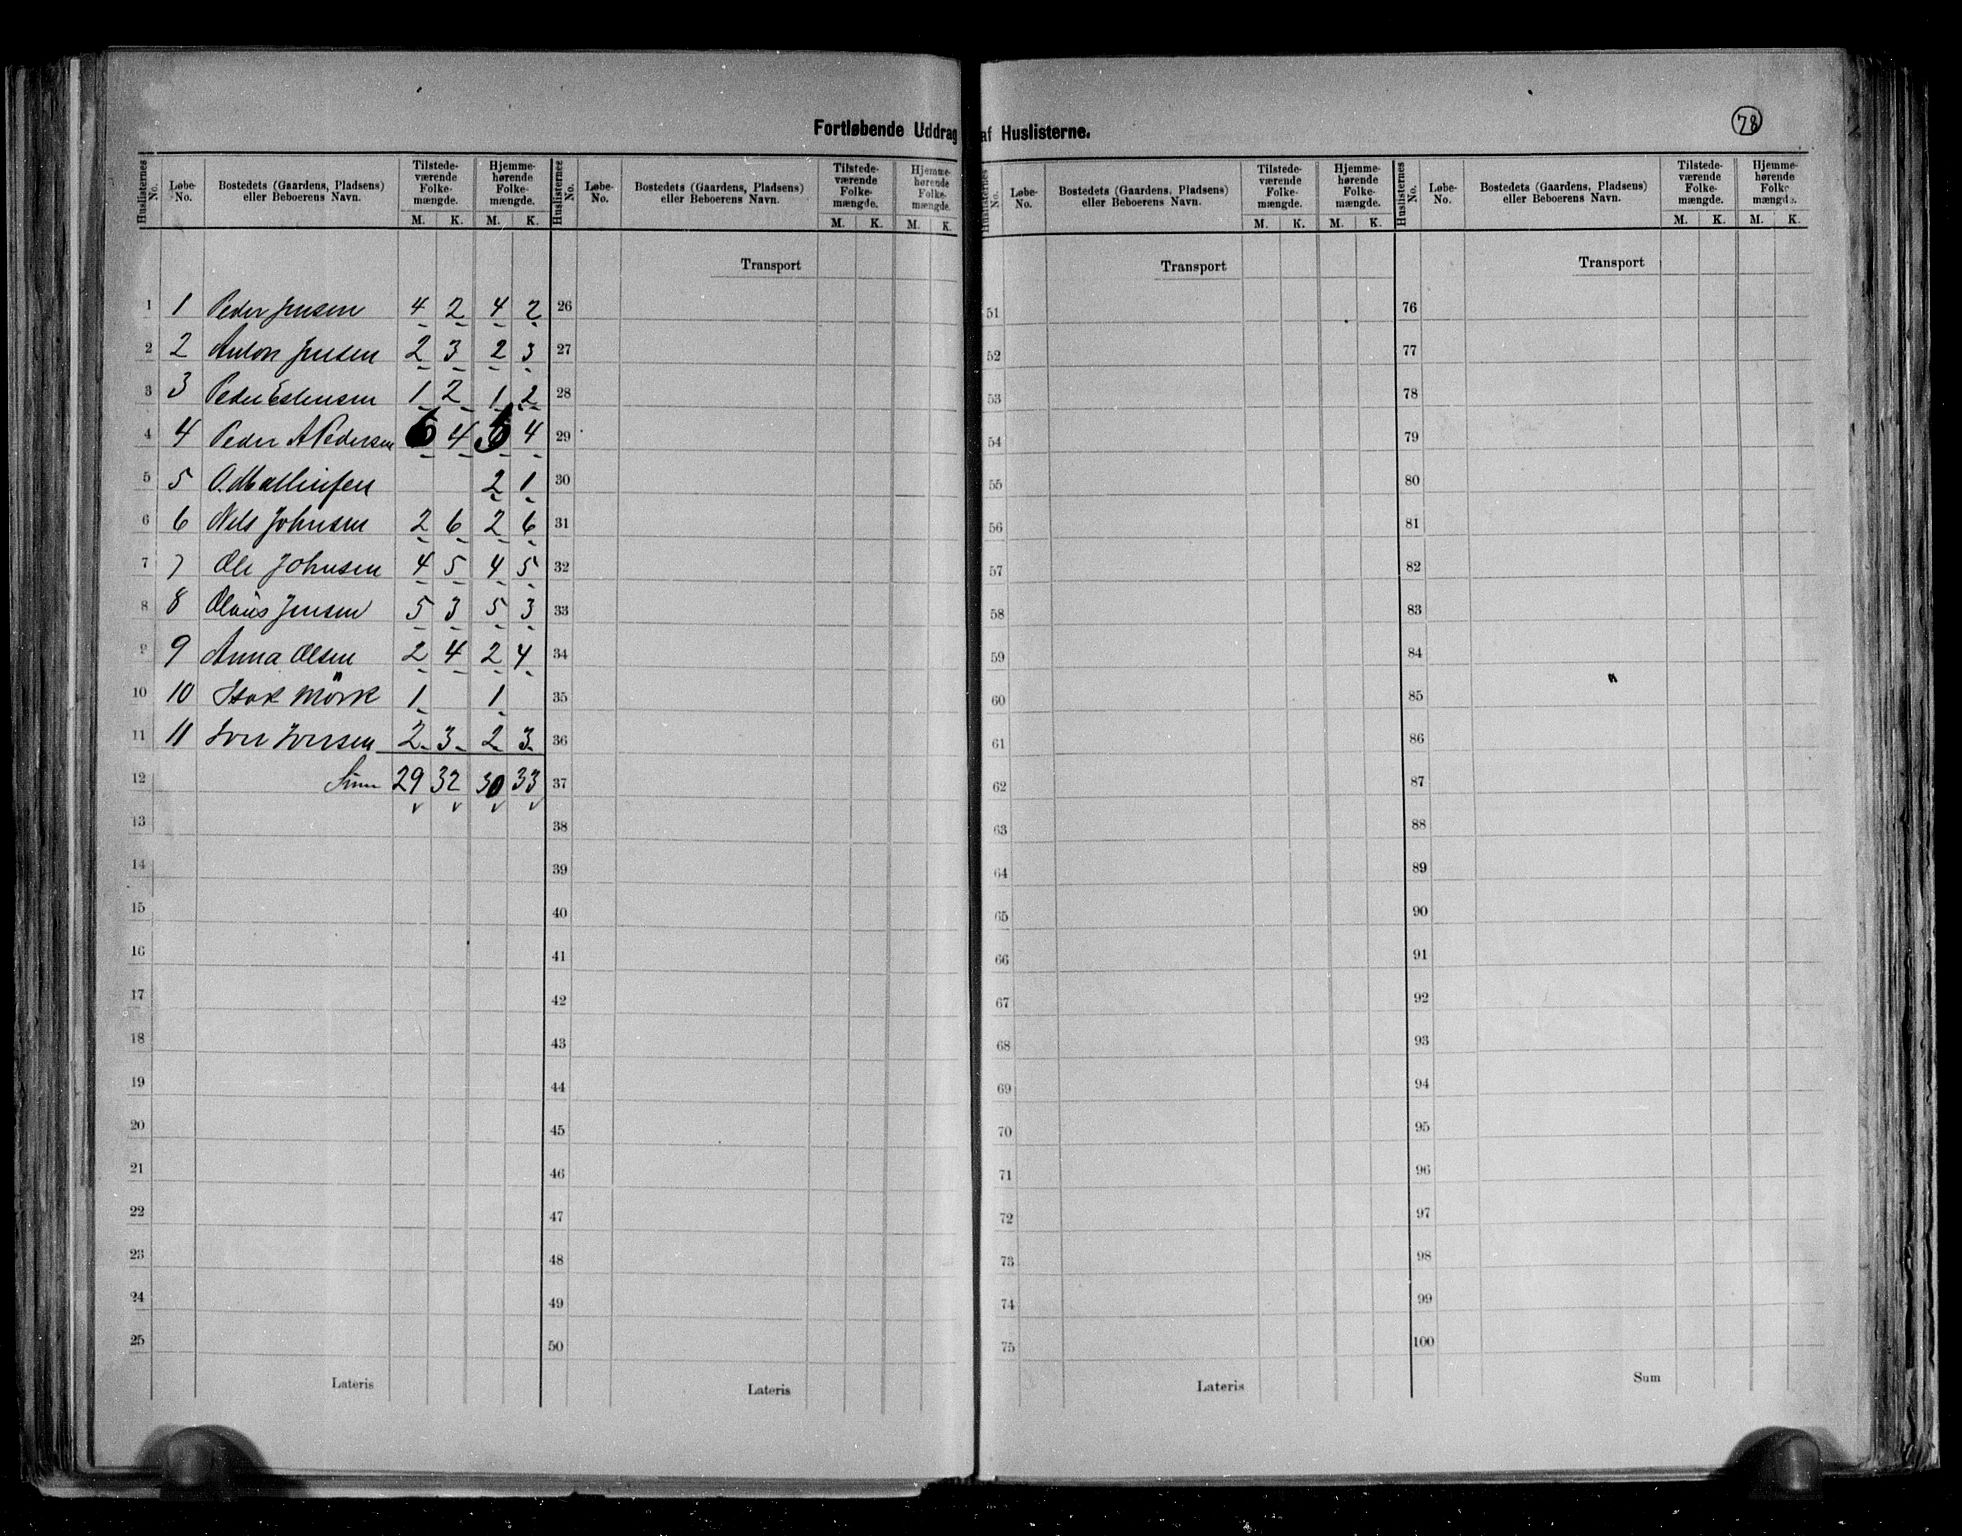 Fortløbende Uddrag af Huslisterne.
78
Huslisternes No. Løbe-No. Bostedets (Gaardens, Pladsens) eller Beboerens Navn. Tilstedeværende Folkemængde. M. K. Hjemmehørende Folkemængde. M. K.
Huslisternes No. Løbe-No. Bostedets (Gaardens, Pladsens) eller Beboerens Navn. Tilstedeværende Folkemængde. M. K. Hjemmehørende Folkemængde. M. K.
Huslisternes No. Løbe-No. Bostedets (Gaardens, Pladsens) eller Beboerens Navn. Tilstedeværende Folkemængde. M. K. Hjemmehørende Folkemængde. M. K.
Huslisternes No. Løbe-No. Bostedets (Gaardens, Pladsens) eller Beboerens Navn. Tilstedeværende Folkemængde. M. K. Hjemmehørende Folkemængde. M. K.
1 1 Peder Jensen 4 2 4 2
2 2 Anton Jensen 2 3 2 3
3 3 Peder Estensen 1 2 1 2
4 4 Peder A Pedersen 6 4 4
5 5 2 1
6 6 Nels Johnsen 2 6 2 6
7 7 Ole Johnsen 4 5 4 5
8 8 Olaus Jensen 5 3 5 3
9 9 Anna Olsen 2 4 2 4
10 10 Isak Mörk 1 1
11 11 Iver Iversen 2 3 2 3
12 Sum 29 32 30 33
13
14
15
16
17
18
19
20
21
22
23
24
25
Lateris
Transport
26
27
28
29
30
31
32
33
34
35
36
37
38
39
40
41
42
43
44
45
46
47
48
49
50
Lateris
Transport
51
52
53
54
55
56
57
58
59
60
61
62
63
64
65
66
67
68
69
70
71
72
73
74
75
Lateris
Transport
76
77
78
79
80
81
82
83
84
85
86
87
88
89
90
91
92
93
94
95
96
97
98
99
100
Sum